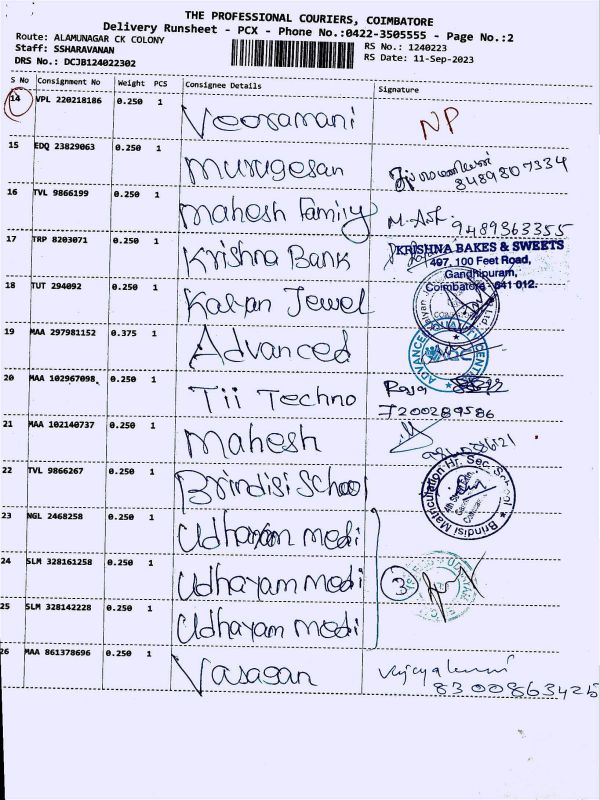 THE PROFESSIONAL COURIERS, COIMBATORE
Delivery Runsheet - PCX - Phone No.:0422-3505555 - Page No.:2
Route: ALAMUNAGAR CK COLONY
Staff: SSHARAVANAN
DRS No.: DCJB124022302
RS No.: 1240223
RS Date: 11-Sep-2023
S No Consignment No Weight PCS Consignee Details Signature
14 VPL 220218186 0.250 1 Veeramani NP
15 EDQ 23829063 0.250 1 Murugesan
8489807334
16 TVL 9866199 0.250 1 Mahesh Family
9489363355
17 TRP 8203071 0.250 1 Krishna Bank
KRISHNA BAKES & SWEETS
497, 100 Feet Road,
Gandhipuram,
Coimbatore - 641 012.
18 TUT 294092 0.250 1 Kalyan Jewel
19 MAA 297981152 0.375 1 Advanced
ADVANCE
20 MAA 102967098 0.250 1 Tii Techno Raja
7200289586
21 MAA 102140737 0.250 1 Mahesh
22 TVL 9866267 0.250 1 Brindisi School
Brindisi Matriculation Hr. Sec. School
23 NGL 2468258 0.250 1 Udhayam medi
24 SLM 328161258 0.250 1 Udhayam medi 3
25 SLM 328142228 0.250 1 Udhayam medi
26 MAA 861378696 0.250 1 Vasagan
8300863425